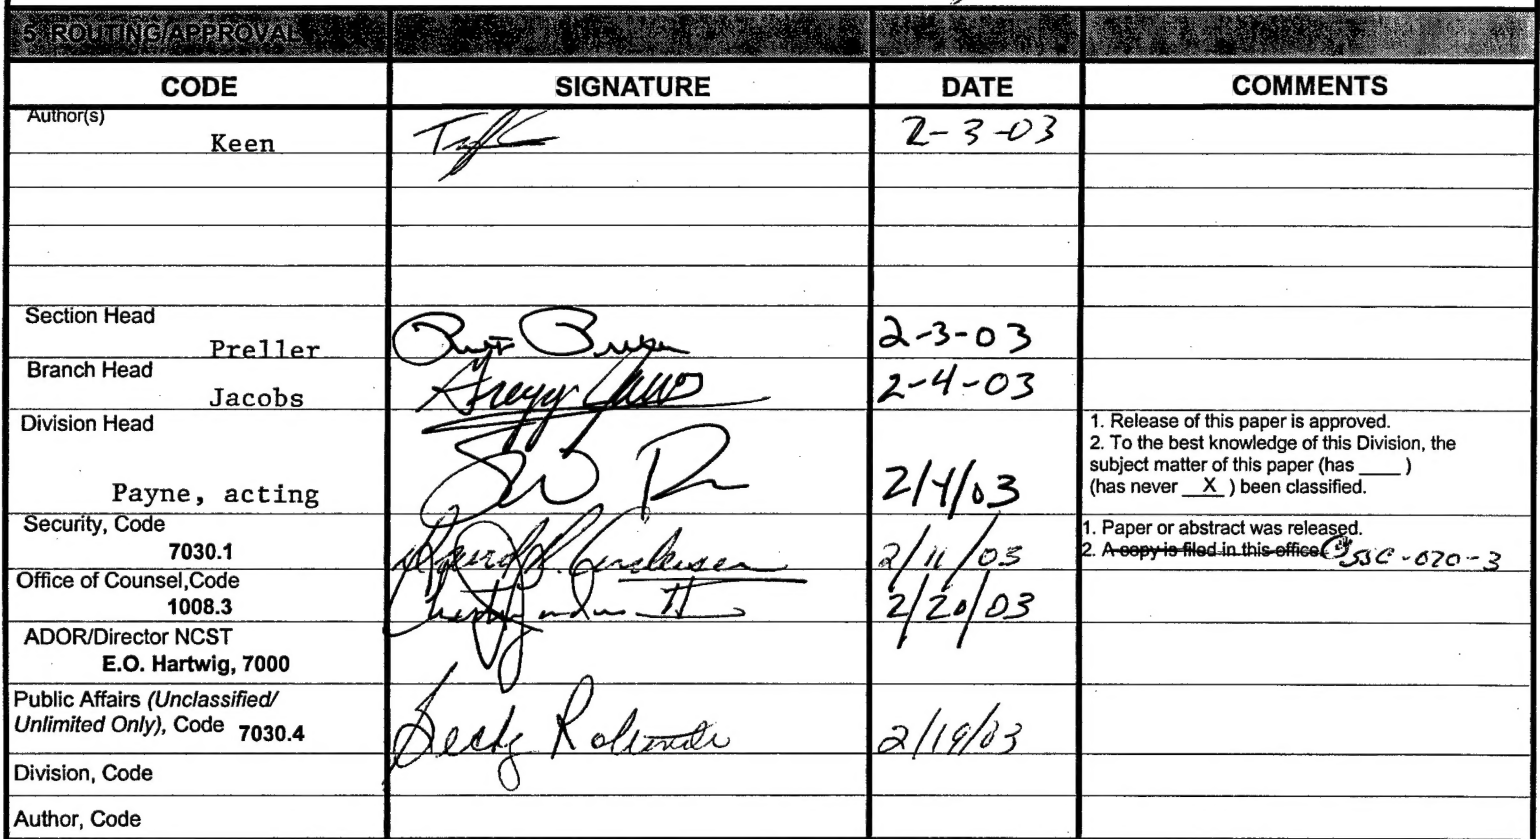 5. ROUTING/APPROVAL
CODE SIGNATURE DATE COMMENTS
Author(s)
Keen 2-3-03
Section Head
Preller 2-3-03
Branch Head
Jacobs 2-4-03
Division Head
Payne, acting 2/4/03
1. Release of this paper is approved.
2. To the best knowledge of this Division, the
subject matter of this paper (has ____ )
(has never __X__ ) been classified.
Security, Code
7030.1 2/11/03
1. Paper or abstract was released.
2. A copy is filed in this office SSC-020-3
Office of Counsel,Code
1008.3 2/20/03
ADOR/Director NCST
E.O. Hartwig, 7000
Public Affairs (Unclassified/
Unlimited Only), Code 7030.4 2/19/03
Division, Code
Author, Code